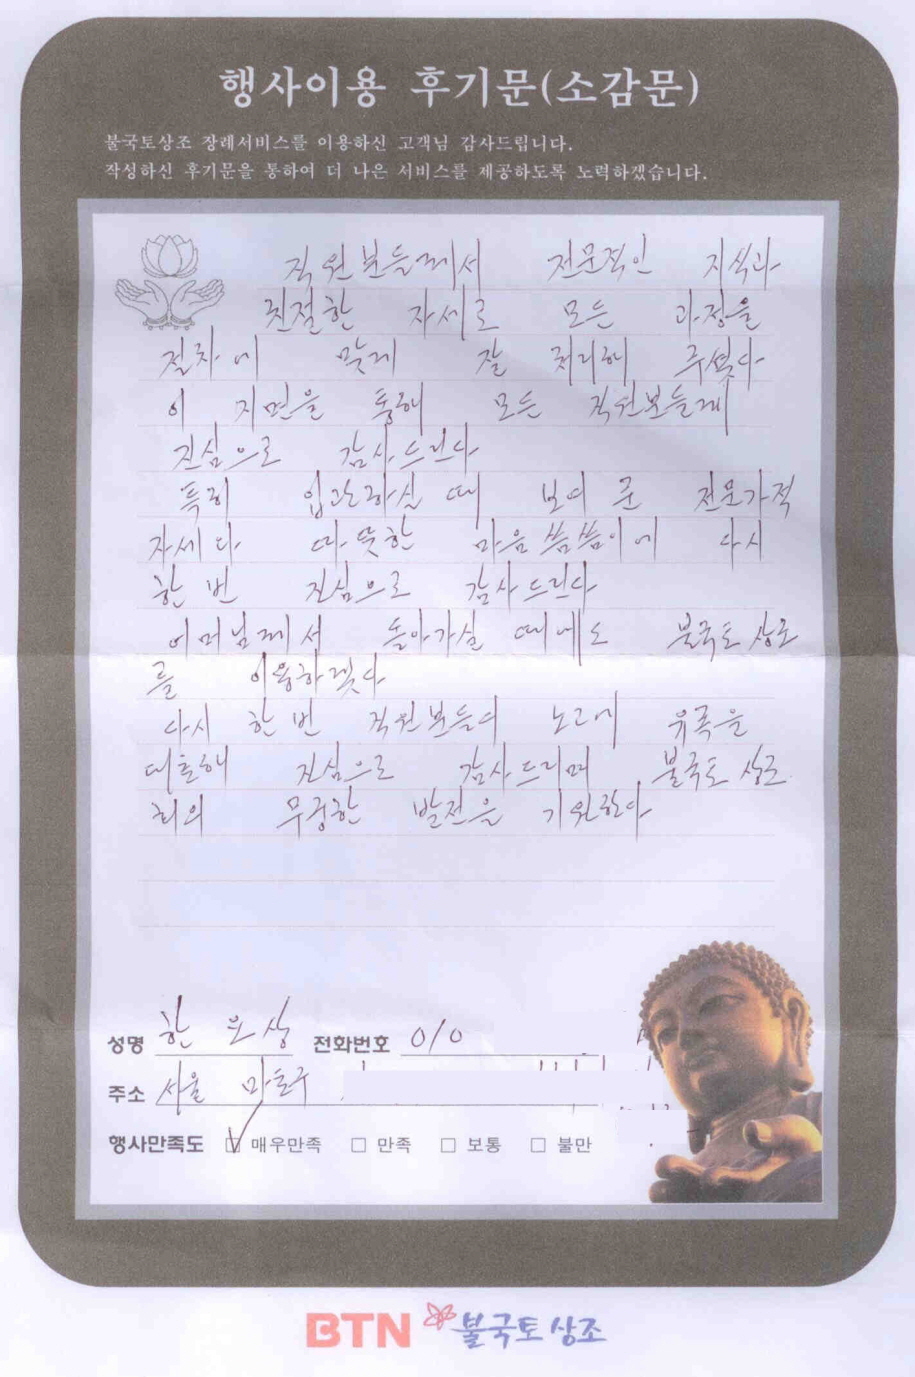 행사이용 후기문(소감문)
불국토상조 장례서비스를 이용하신 고객님 감사드립니다.
작성하신 후기문을 통하여 더 나은 서비스를 제공하도록 노력하겠습니다.
직원분들께서 전문적인 지식과
친절한 자세로 모든 과정을
절차에 맞게 잘 처리해 주셨다
이 지면을 통해 모든 직원분들께
진심으로 감사드린다
특히 입관하실 때 보여준 전문가적
자세와 따뜻한 마음 씀씀이에 다시
한 번 진심으로 감사드린다
어머님께서 돌아가실 때에도 불국토 상조
를 이용하겠다
다시 한 번 직원분들의 노고에 유족을
대표해 진심으로 감사드리며 불국토 상조
회의 무궁한 발전을 기원한다
성명 한 상 전화번호 010
주소 서울 마포구
행사만족도 매우만족 만족 보통 불만
BTN 불국토상조